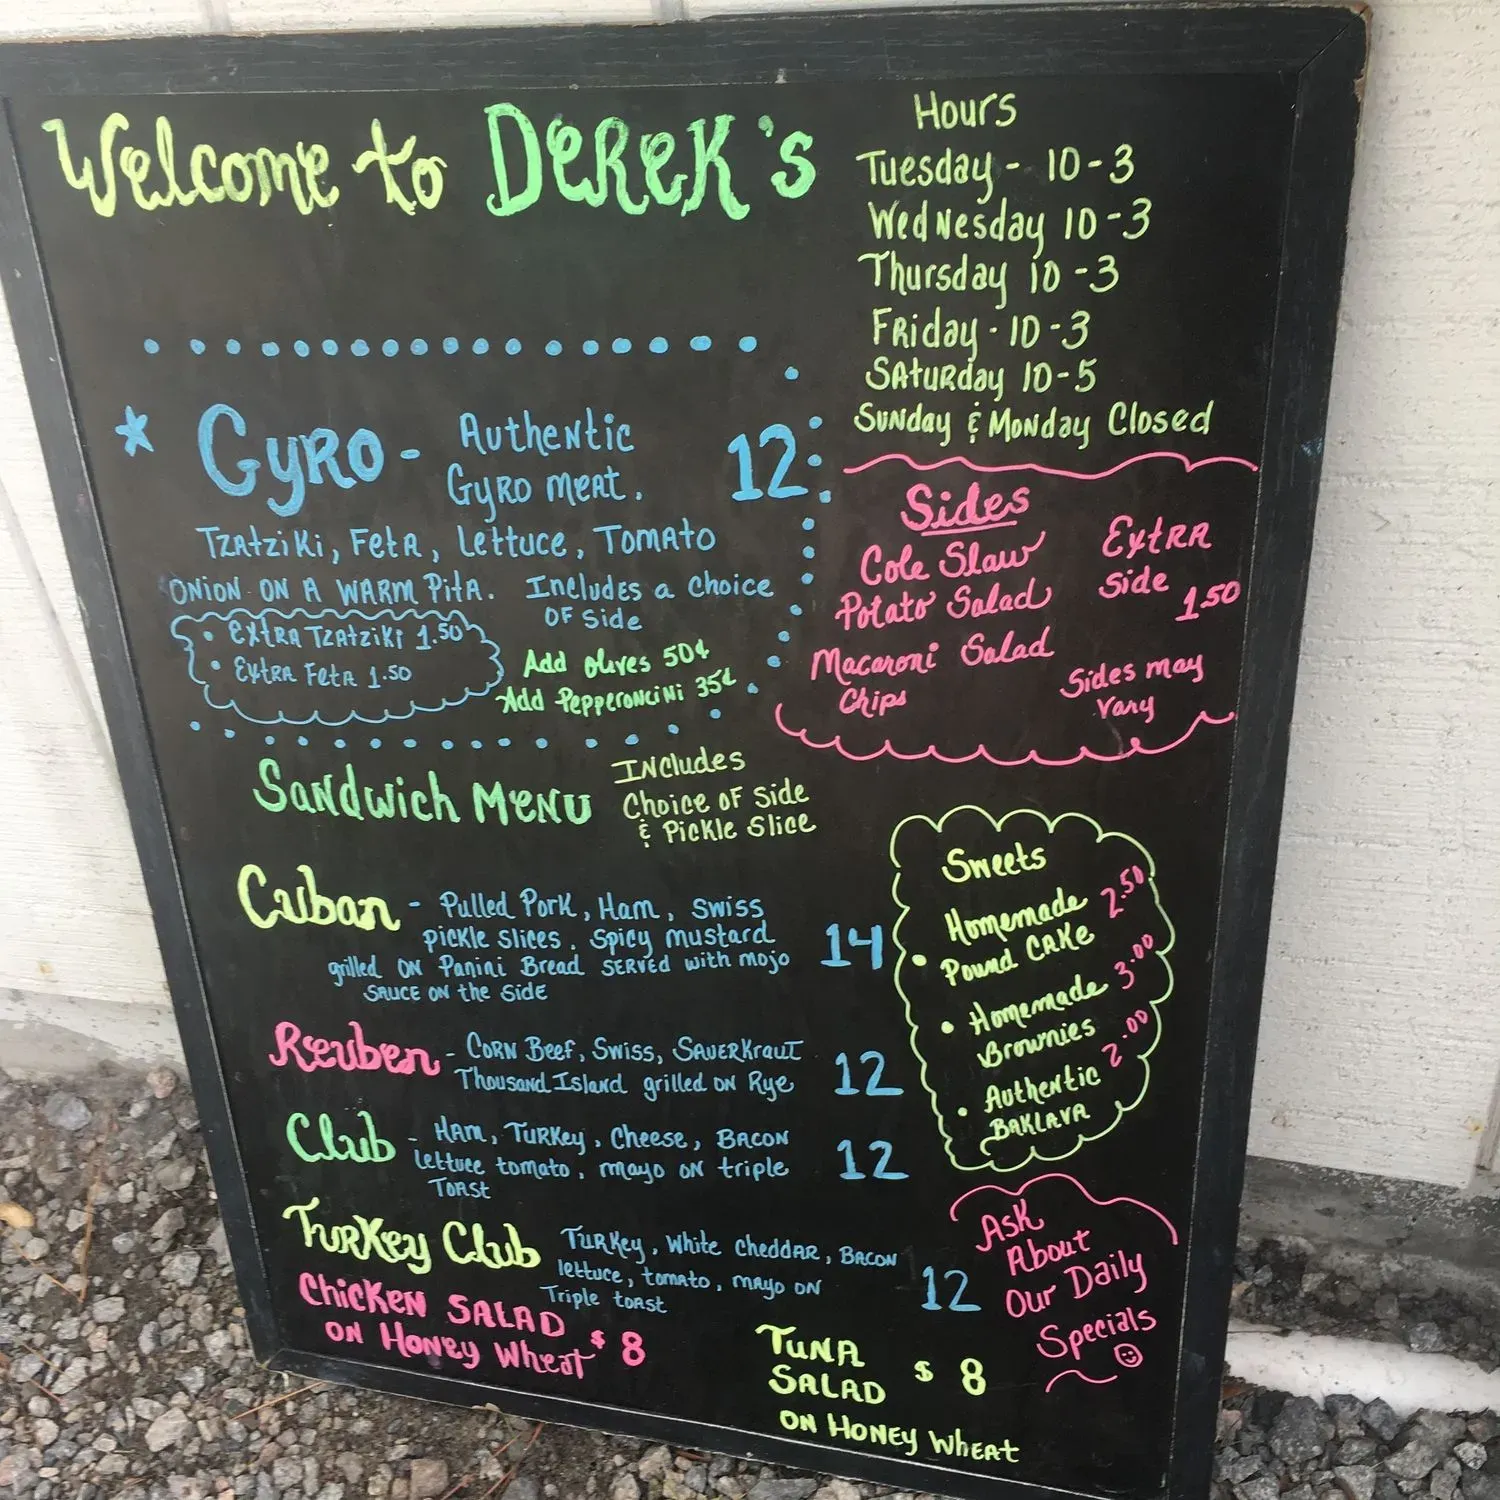 Welcome to Derek's
Hours
Tuesday - 10-3
Wednesday 10-3
Thursday 10-3
Friday - 10-3
Saturday 10-5
Sunday & Monday Closed
Gyro - Authentic
Gyro meat.
12
Tzatziki, Feta, Lettuce, Tomato
Onion on a warm Pita. Includes a choice
of side
• Extra Tzatziki 1.50
• Extra Feta 1.50
Add olives 50¢
Add Pepperoncini 35¢
Sides
Cole Slaw
Potato Salad
Macaroni Salad
Chips
Extra
side
1.50
Sides may
vary
Sandwich Menu
Includes
Choice of side
& Pickle Slice
Cuban - Pulled Pork, Ham, Swiss
pickle slices, spicy mustard
grilled on Panini Bread served with mojo
sauce on the side
14
Reuben - Corn Beef, Swiss, Sauerkraut
Thousand Island grilled on Rye
12
Club - Ham, Turkey, Cheese, Bacon
lettuce tomato, mayo on triple
Toast
12
Turkey Club Turkey, White cheddar, Bacon
lettuce, tomato, mayo on
Triple toast
12
Chicken Salad
on Honey Wheat
$8
Tuna
Salad
on Honey Wheat
$8
Sweets
• Homemade
Pound Cake
2.50
• Homemade
Brownies
3.00
• Authentic
Baklava
2.00
Ask
About
Our Daily
Specials